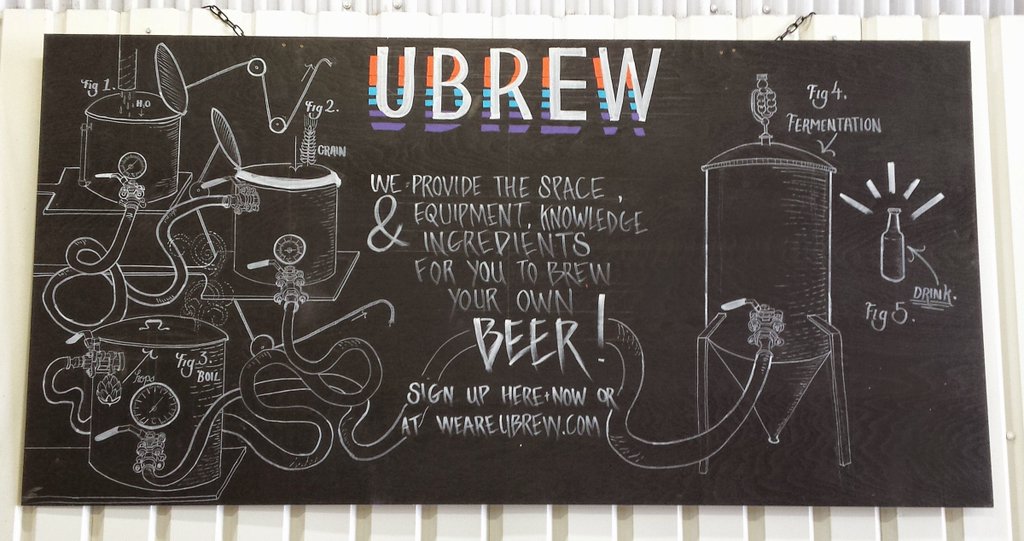 UBREW
Fig 1.
H2O
Fig 2.
GRAIN
WE PROVIDE THE SPACE,
EQUIPMENT, KNOWLEDGE
& INGREDIENTS
FOR YOU TO BREW
YOUR OWN
BEER!
SIGN UP HERE+NOW OR
AT WEAREUBREW.COM
Fig 3.
BOIL
hops
Fig 4.
FERMENTATION
DRINK.
Fig 5.